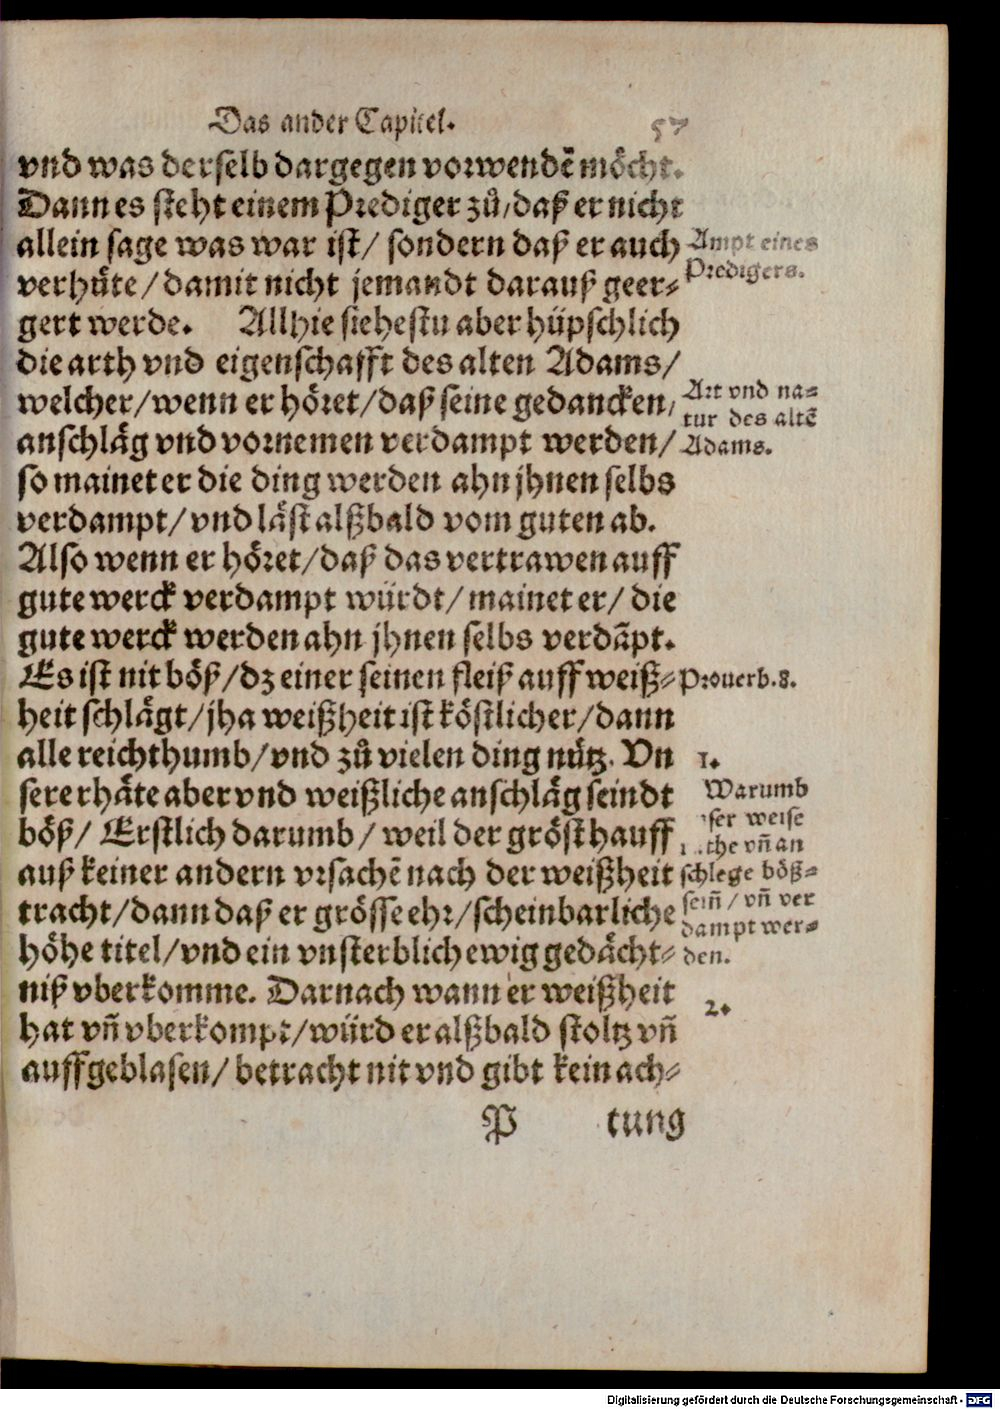 Das ander Capitel. 57
vnd was derselb dargegen vorwendē möcht.
Dann es steht einem Prediger zů/daß er nicht
allein sage was war ist/ sondern daß er auch
Ampt eines
Predigers.
verhüte/damit nicht jemandt darauß geer⸗
gert werde. Allhie siehestu aber hüpschlich
die arth vnd eigenschafft des alten Adams/
welcher/wenn er höret/daß seine gedancken/
Art vnd na⸗
tur des altē
Adams.
anschläg vnd vornemen verdampt werden/
so mainet er die ding werden ahn jhnen selbs
verdampt/vnd läst alßbald vom guten ab.
Also wenn er höret/daß das vertrawen auff
gute werck verdampt würdt/mainet er/die
gute werck werden ahn jhnen selbs verdāpt.
Es ist nit böß/dz einer seinen fleiß auff weiß⸗
Prouerb.8.
heit schlägt/jha weißheit ist köstlicher/dann
alle reichthumb/vnd zů vielen ding nütz. Vn
1.
sere rhäte aber vnd weißliche anschläg seindt
böß/ Erstlich darumb/weil der gröst hauff
Warumb
ser weise
che vñ an
schlege böß⸗
seiñ/vñ ver
dampt wer⸗
den.
auß keiner andern vrsachē nach der weißheit
tracht/dann daß er grösse ehr/scheinbarliche
höhe titel/vnd ein vnsterblich ewig gedächt⸗
niß vberkomme. Darnach wann er weißheit
2.
hat vñ vberkompt/würd er alßbald stoltz vñ
auffgeblasen/betracht nit vnd gibt kein ach⸗
P tung
Digitalisierung gefördert durch die Deutsche Forschungsgemeinschaft - DFG